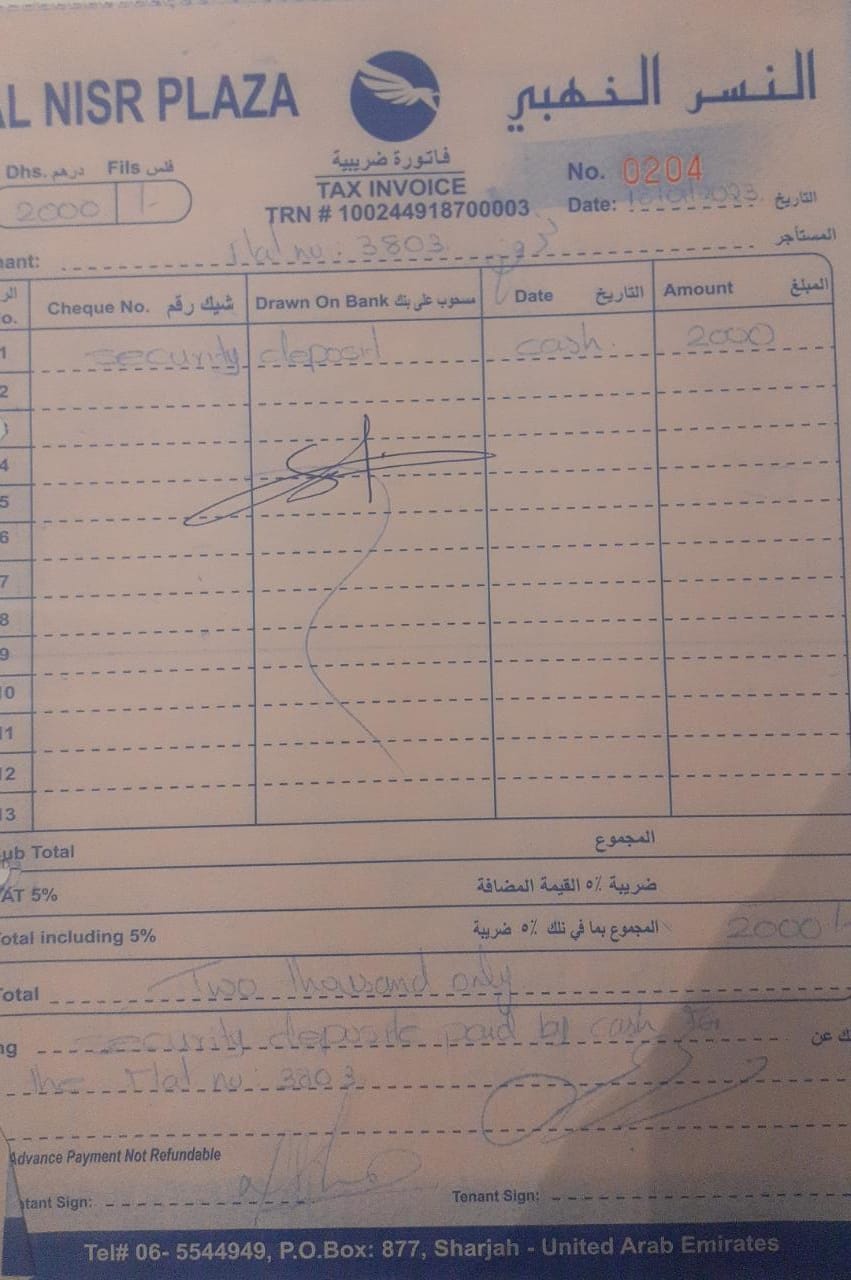 AL NISR PLAZA
النسر الذهبي
Dhs. درهم Fils فلس
2000 /-
فاتورة ضريبية
TAX INVOICE
TRN # 100244918700003
No. 0204
Date: التاريخ
nant: Flat no: 3803 المستأجر
o. Cheque No. شيك رقم Drawn On Bank مسحوب على بنك Date التاريخ Amount المبلغ
1 security deposit cash. 2000
2
4
5
6
7
8
9
10
11
12
13
ub Total المجموع
AT 5% ضريبة ٥٪ القيمة المضافة
otal including 5% المجموع بما في ذلك ٥٪ ضريبة 2000/-
otal Two thousand only
ng security deposite paid by cash ك عن
the Flat no: 3803
Advance Payment Not Refundable
ntant Sign: Tenant Sign:
Tel# 06- 5544949, P.O.Box: 877, Sharjah - United Arab Emirates